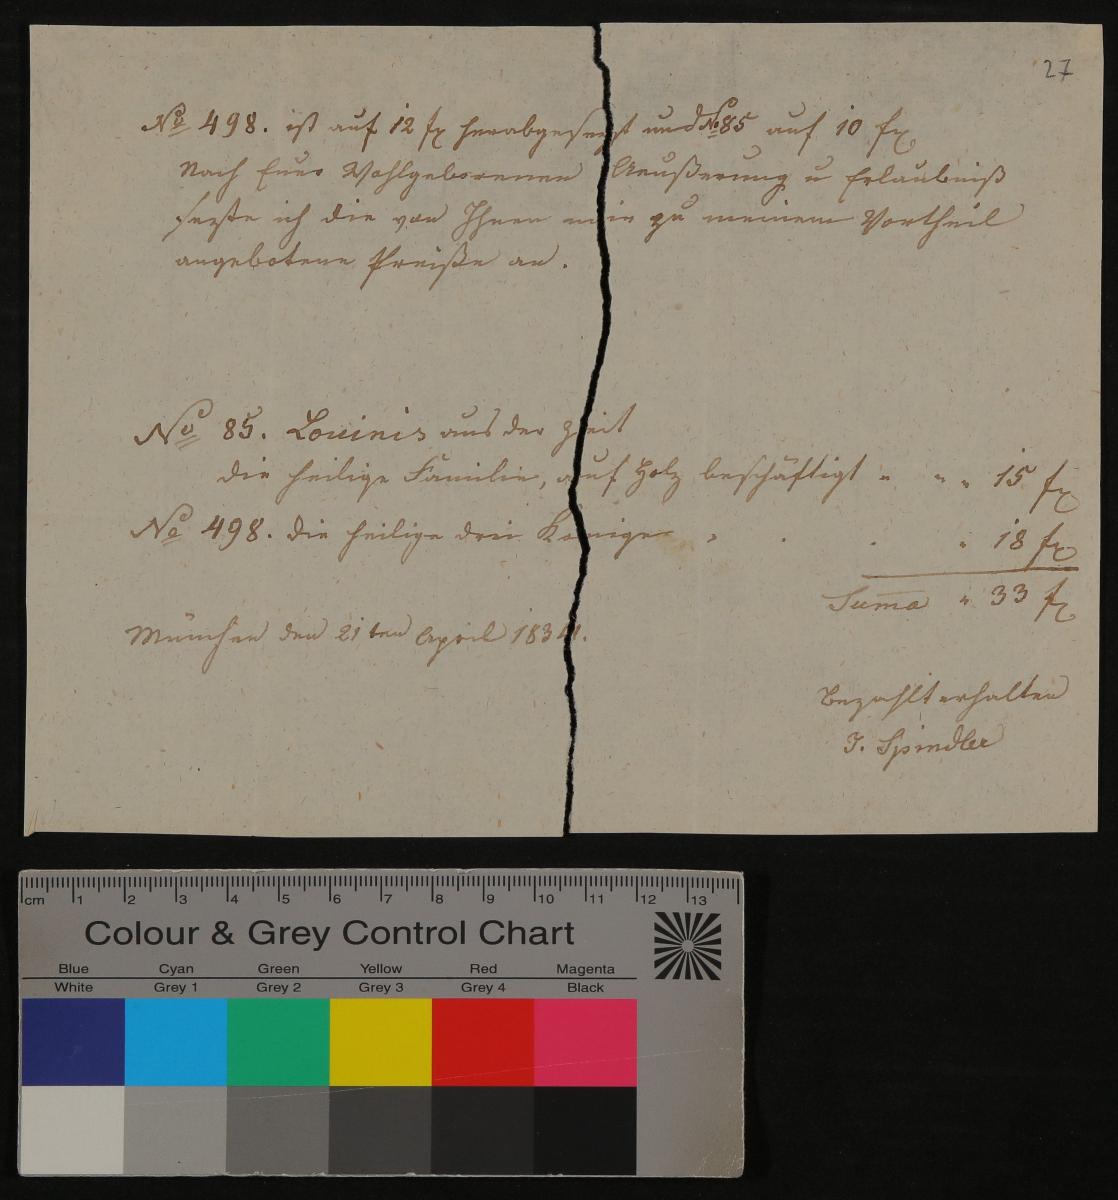 27
No 498. ist auf 12 fx herabgesezt und No 85 auf 10 fx
Nach Euer Wohlgeborenen Aeußerung u Erlaubniß
sezte ich die von Ihnen mir zu meinem Vortheil
angebotene Preiße an.
No 85. Lovinis aus der Zeit
die heilige Familie, auf Holz beschäftigt " " " 15 fx
No 498. die heilige drei Könige " . . " 18 fx
Suma " 33 fx
München den 21ten April 1834.
Bezahlt erhalten
J. Spindler
cm 1 2 3 4 5 6 7 8 9 10 11 12 13
Colour & Grey Control Chart
Blue Cyan Green Yellow Red Magenta
White Grey 1 Grey 2 Grey 3 Grey 4 Black